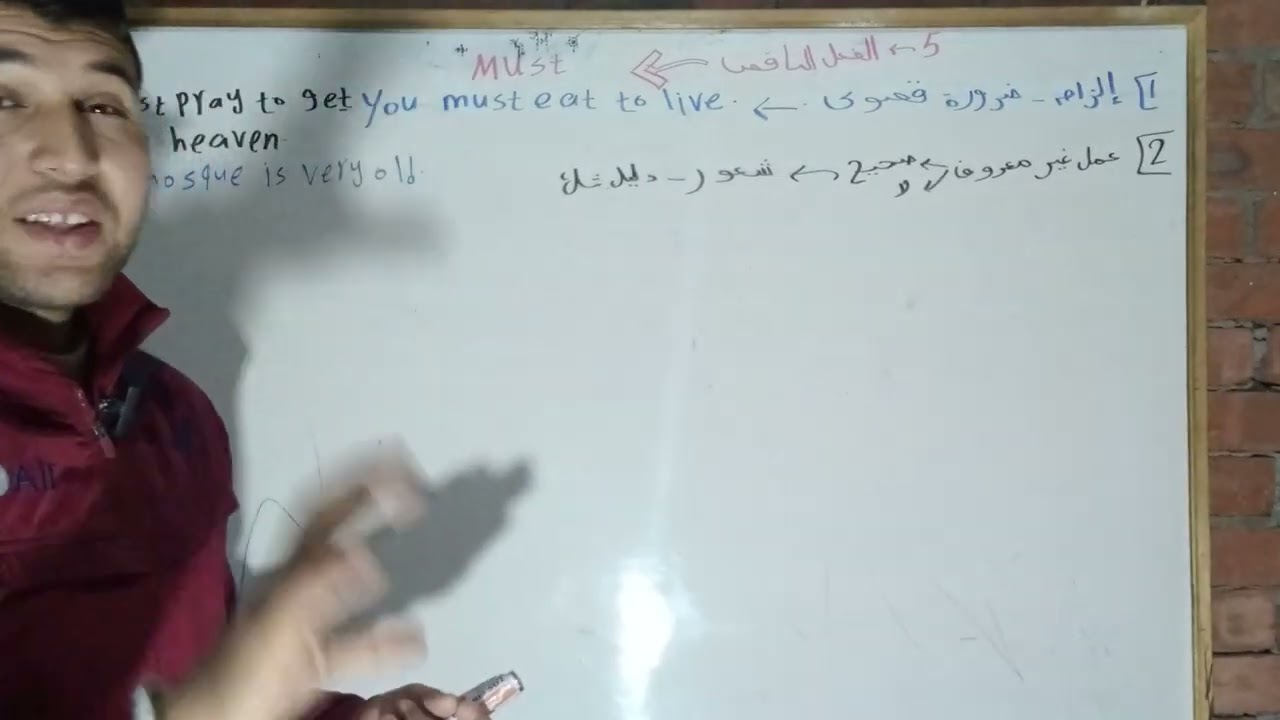 5 ← الفعل الناقص ← Must
1 إلزام - ضرورة قصوى ← You must eat to live.
st pray to get
heaven
2 عمل غير معروف صحيح ← شعور - دليل
لا
mosque is very old.
All